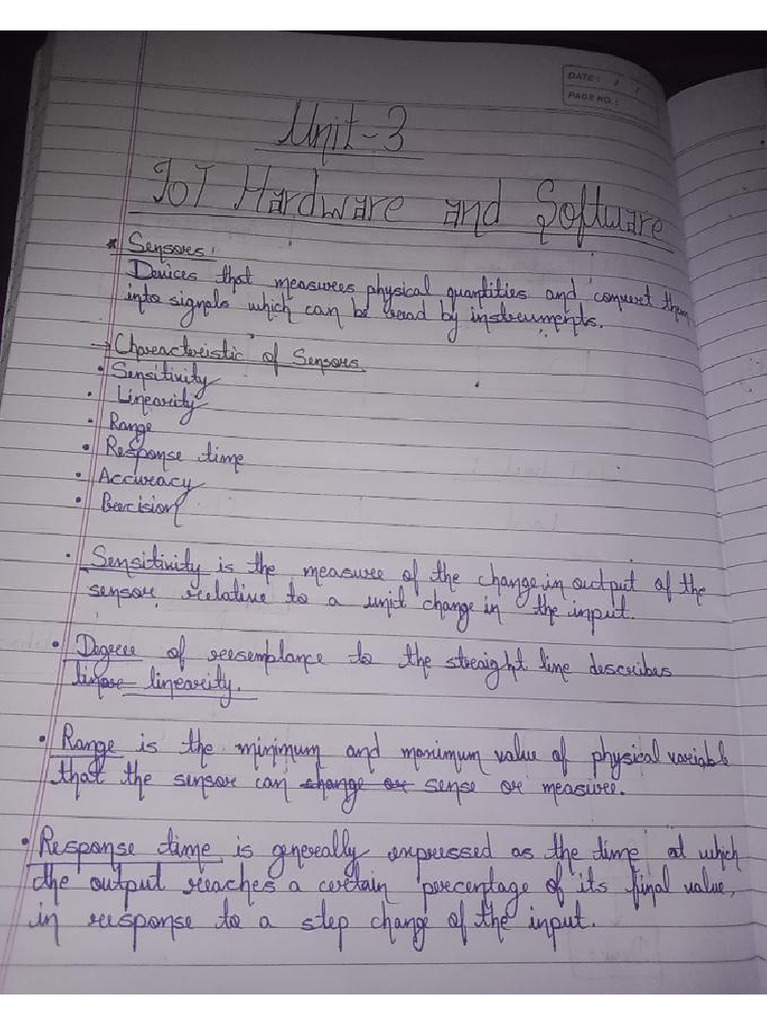 DATE: / /
PAGE NO.:
Unit-3
IoT Hardware and Software
* Sensors:
Devices that measures physical quantities and convert them
into signals which can be read by instruments.
→ Characteristic of Sensors
• Sensitivity
• Linearity
• Range
• Response time
• Accuracy
• Precision
• Sensitivity is the measure of the change in output of the
sensor relative to a unit change in the input.
• Degree of resemplance to the straight line describes
linear linearity.
• Range is the minimum and maximum value of physical variable
that the sensor can change or sense or measure.
• Response time is generally expressed as the time at which
the output reaches a certain percentage of its final value,
in response to a step change of the input.